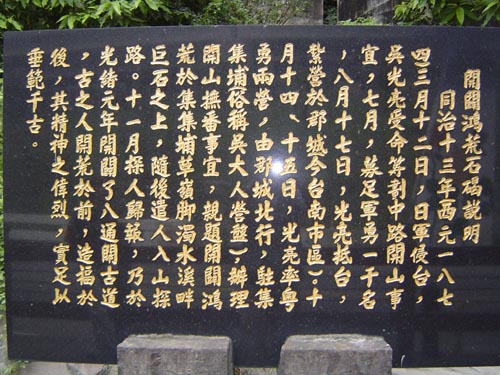 開闢鴻荒石碣說明
同治十三年西元一八七
四三月十二日，日軍侵台，
吳光亮受命籌劃中路開山事
宜，七月，募足軍勇一千名
，八月十七日，光亮抵台，
紮營於郡城今台南市區）。十
月十四、十五日，光亮率粵
勇兩營，由郡城北行，駐集
集埔俗稱吳大人營盤）辦理
開山撫番事宜，親題開闢鴻
荒於集集埔草嶺腳濁水溪畔
巨石之上，隨後遣人入山探
路。十一月探人歸報，乃於
光緒元年開闢了八通關古道
，古之人開荒於前，造福於
後，其精神之偉烈，實足以
垂範千古。